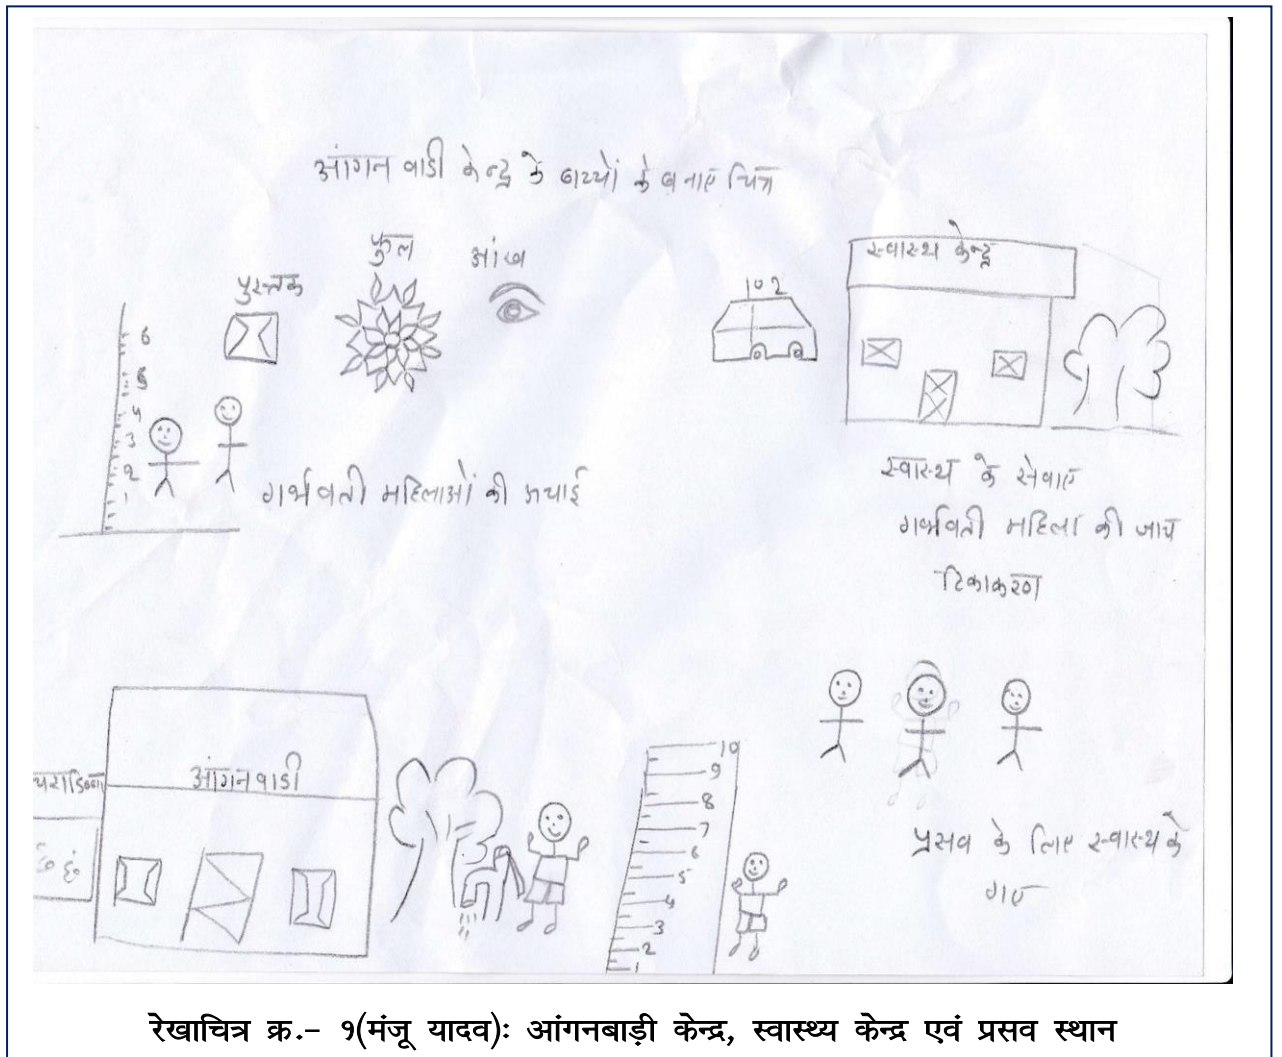 आंगन वाडी केन्द्र के बच्चों के बनाए चित्र
पुस्तक
फुल
आंख
102
स्वास्थ केन्द्र
6
5
4
3
2
1
गर्भवती महिलाओं की उचाई
स्वास्थ के सेवाए
गर्भवती महिला की जाच
टिकाकरण
आंगनवाडी
10
9
8
7
6
5
4
3
2
1
प्रसव के लिए स्वास्थ के
गए
रेखाचित्र क्र.- १(मंजू यादव): आंगनबाड़ी केन्द्र, स्वास्थ्य केन्द्र एवं प्रसव स्थान